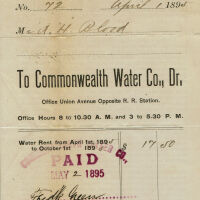 No. 72 April 1 1895
M A. H. Blood
To Commonwealth Water Co., Dr.
Office Union Avenue Opposite R. R. Station.
Office Hours 8 to 10.30 A. M. and 3 to 5.30 P. M.
Water Rent from April 1st, 1895
to October 1st 1895 17 50
PAID
MAY 2 1895